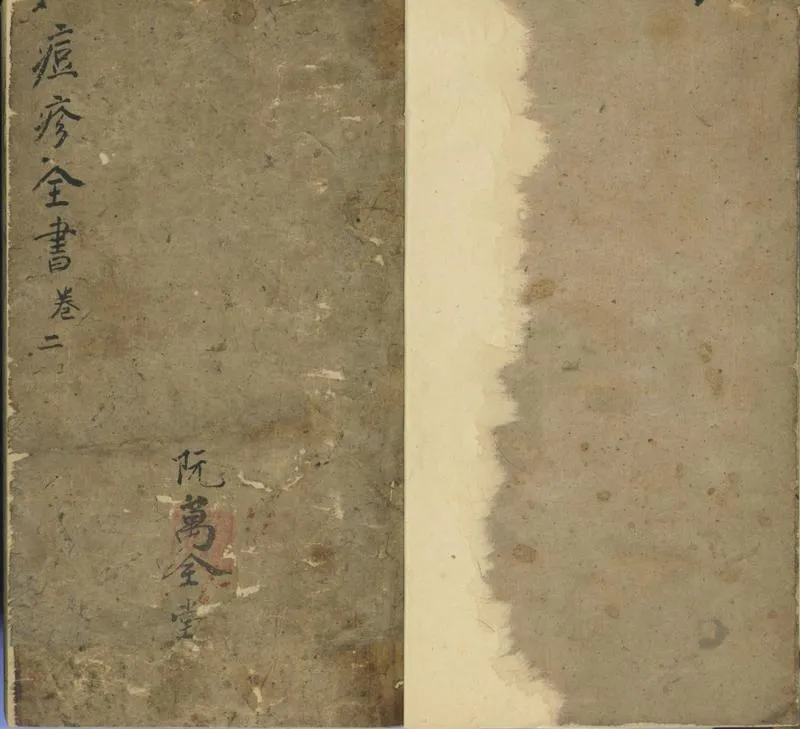 痘疹全書卷二
阮萬全堂